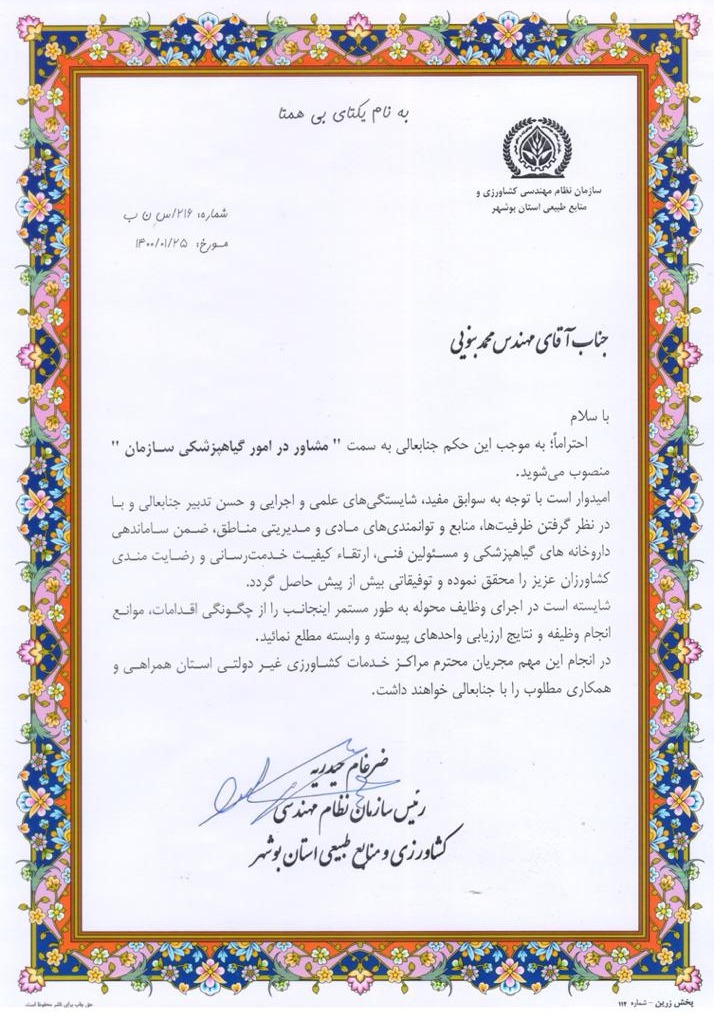 به نام یکتای بی همتا
سازمان نظام مهندسی کشاورزی و
منابع طبیعی استان بوشهر
شماره: ۲۱۶/س ن ب
مورخ: ۱۴۰۰/۰۱/۲۵
جناب آقای مهندس محمد بنویی
با سلام
احتراماً؛ به موجب این حکم جنابعالی به سمت " مشاور در امور گیاهپزشکی سازمان "
منصوب می‌شوید.
امیدوار است با توجه به سوابق مفید، شایستگی‌های علمی و اجرایی و حسن تدبیر جنابعالی و با
در نظر گرفتن ظرفیت‌ها، منابع و توانمندی‌های مادی و مدیریتی مناطق، ضمن ساماندهی
داروخانه های گیاهپزشکی و مسئولین فنی، ارتقاء کیفیت خدمت‌رسانی و رضایت مندی
کشاورزان عزیز را محقق نموده و توفیقاتی بیش از پیش حاصل گردد.
شایسته است در اجرای وظایف محوله به طور مستمر اینجانب را از چگونگی اقدامات، موانع
انجام وظیفه و نتایج ارزیابی واحدهای پیوسته و وابسته مطلع نمائید.
در انجام این مهم مجریان محترم مراکز خدمات کشاورزی غیر دولتی استان همراهی و
همکاری مطلوب را با جنابعالی خواهند داشت.
ضرغام حیدریه
رئیس سازمان نظام مهندسی
کشاورزی و منابع طبیعی استان بوشهر
پخش زرین - شماره ۱۱۲
حق چاپ برای ناشر محفوظ است.